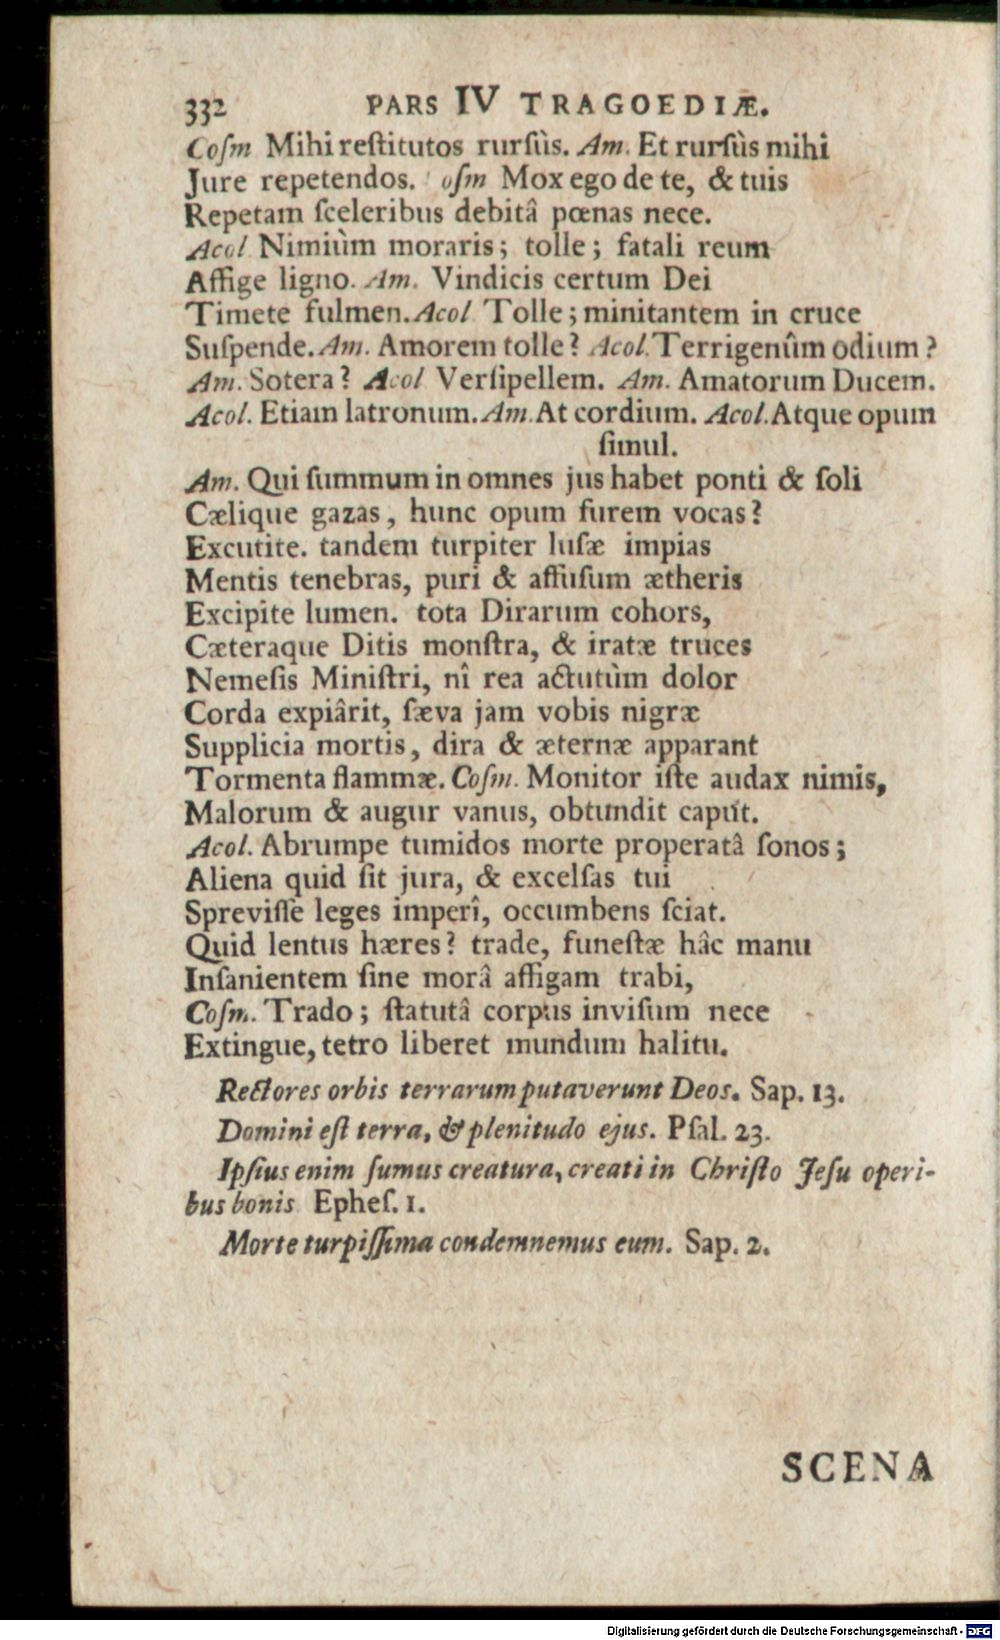 332 PARS IV TRAGOEDIÆ.
Coſm Mihi reſtitutos rurſùs. Am. Et rurſùs mihi
Jure repetendos. oſm Mox ego de te, & tuis
Repetam ſceleribus debitâ pœnas nece.
Acol Nimiùm moraris; tolle; fatali reum
Affige ligno. Am. Vindicis certum Dei
Timete fulmen. Acol Tolle; minitantem in cruce
Suſpende. Am. Amorem tolle? Acol. Terrigenûm odium?
Am. Sotera? Acol Verſipellem. Am. Amatorum Ducem.
Acol. Etiam latronum. Am. At cordium. Acol. Atque opum
ſimul.
Am. Qui ſummum in omnes jus habet ponti & ſoli
Cælique gazas, hunc opum furem vocas?
Excutite. tandem turpiter luſæ impias
Mentis tenebras, puri & affuſum ætheris
Excipite lumen. tota Dirarum cohors,
Cæteraque Ditis monſtra, & iratæ truces
Nemeſis Miniſtri, nî rea actutùm dolor
Corda expiârit, ſæva jam vobis nigræ
Supplicia mortis, dira & æternæ apparant
Tormenta flammæ. Coſm. Monitor iſte audax nimis,
Malorum & augur vanus, obtundit caput.
Acol. Abrumpe tumidos morte properatâ ſonos;
Aliena quid ſit jura, & excelſas tui
Spreviſſe leges imperî, occumbens ſciat.
Quid lentus hæres? trade, funeſtæ hâc manu
Inſanientem ſine morâ affigam trabi,
Coſm. Trado; ſtatutâ corpus inviſum nece
Extingue, tetro liberet mundum halitu.
Rectores orbis terrarum putaverunt Deos. Sap. 13.
Domini eſt terra, & plenitudo ejus. Pſal. 23.
Ipſius enim ſumus creatura, creati in Chriſto Jeſu operi-
bus bonis Epheſ. 1.
Morte turpiſſima condemnemus eum. Sap. 2.
SCENA
Digitalisierung gefördert durch die Deutsche Forschungsgemeinschaft - DFG